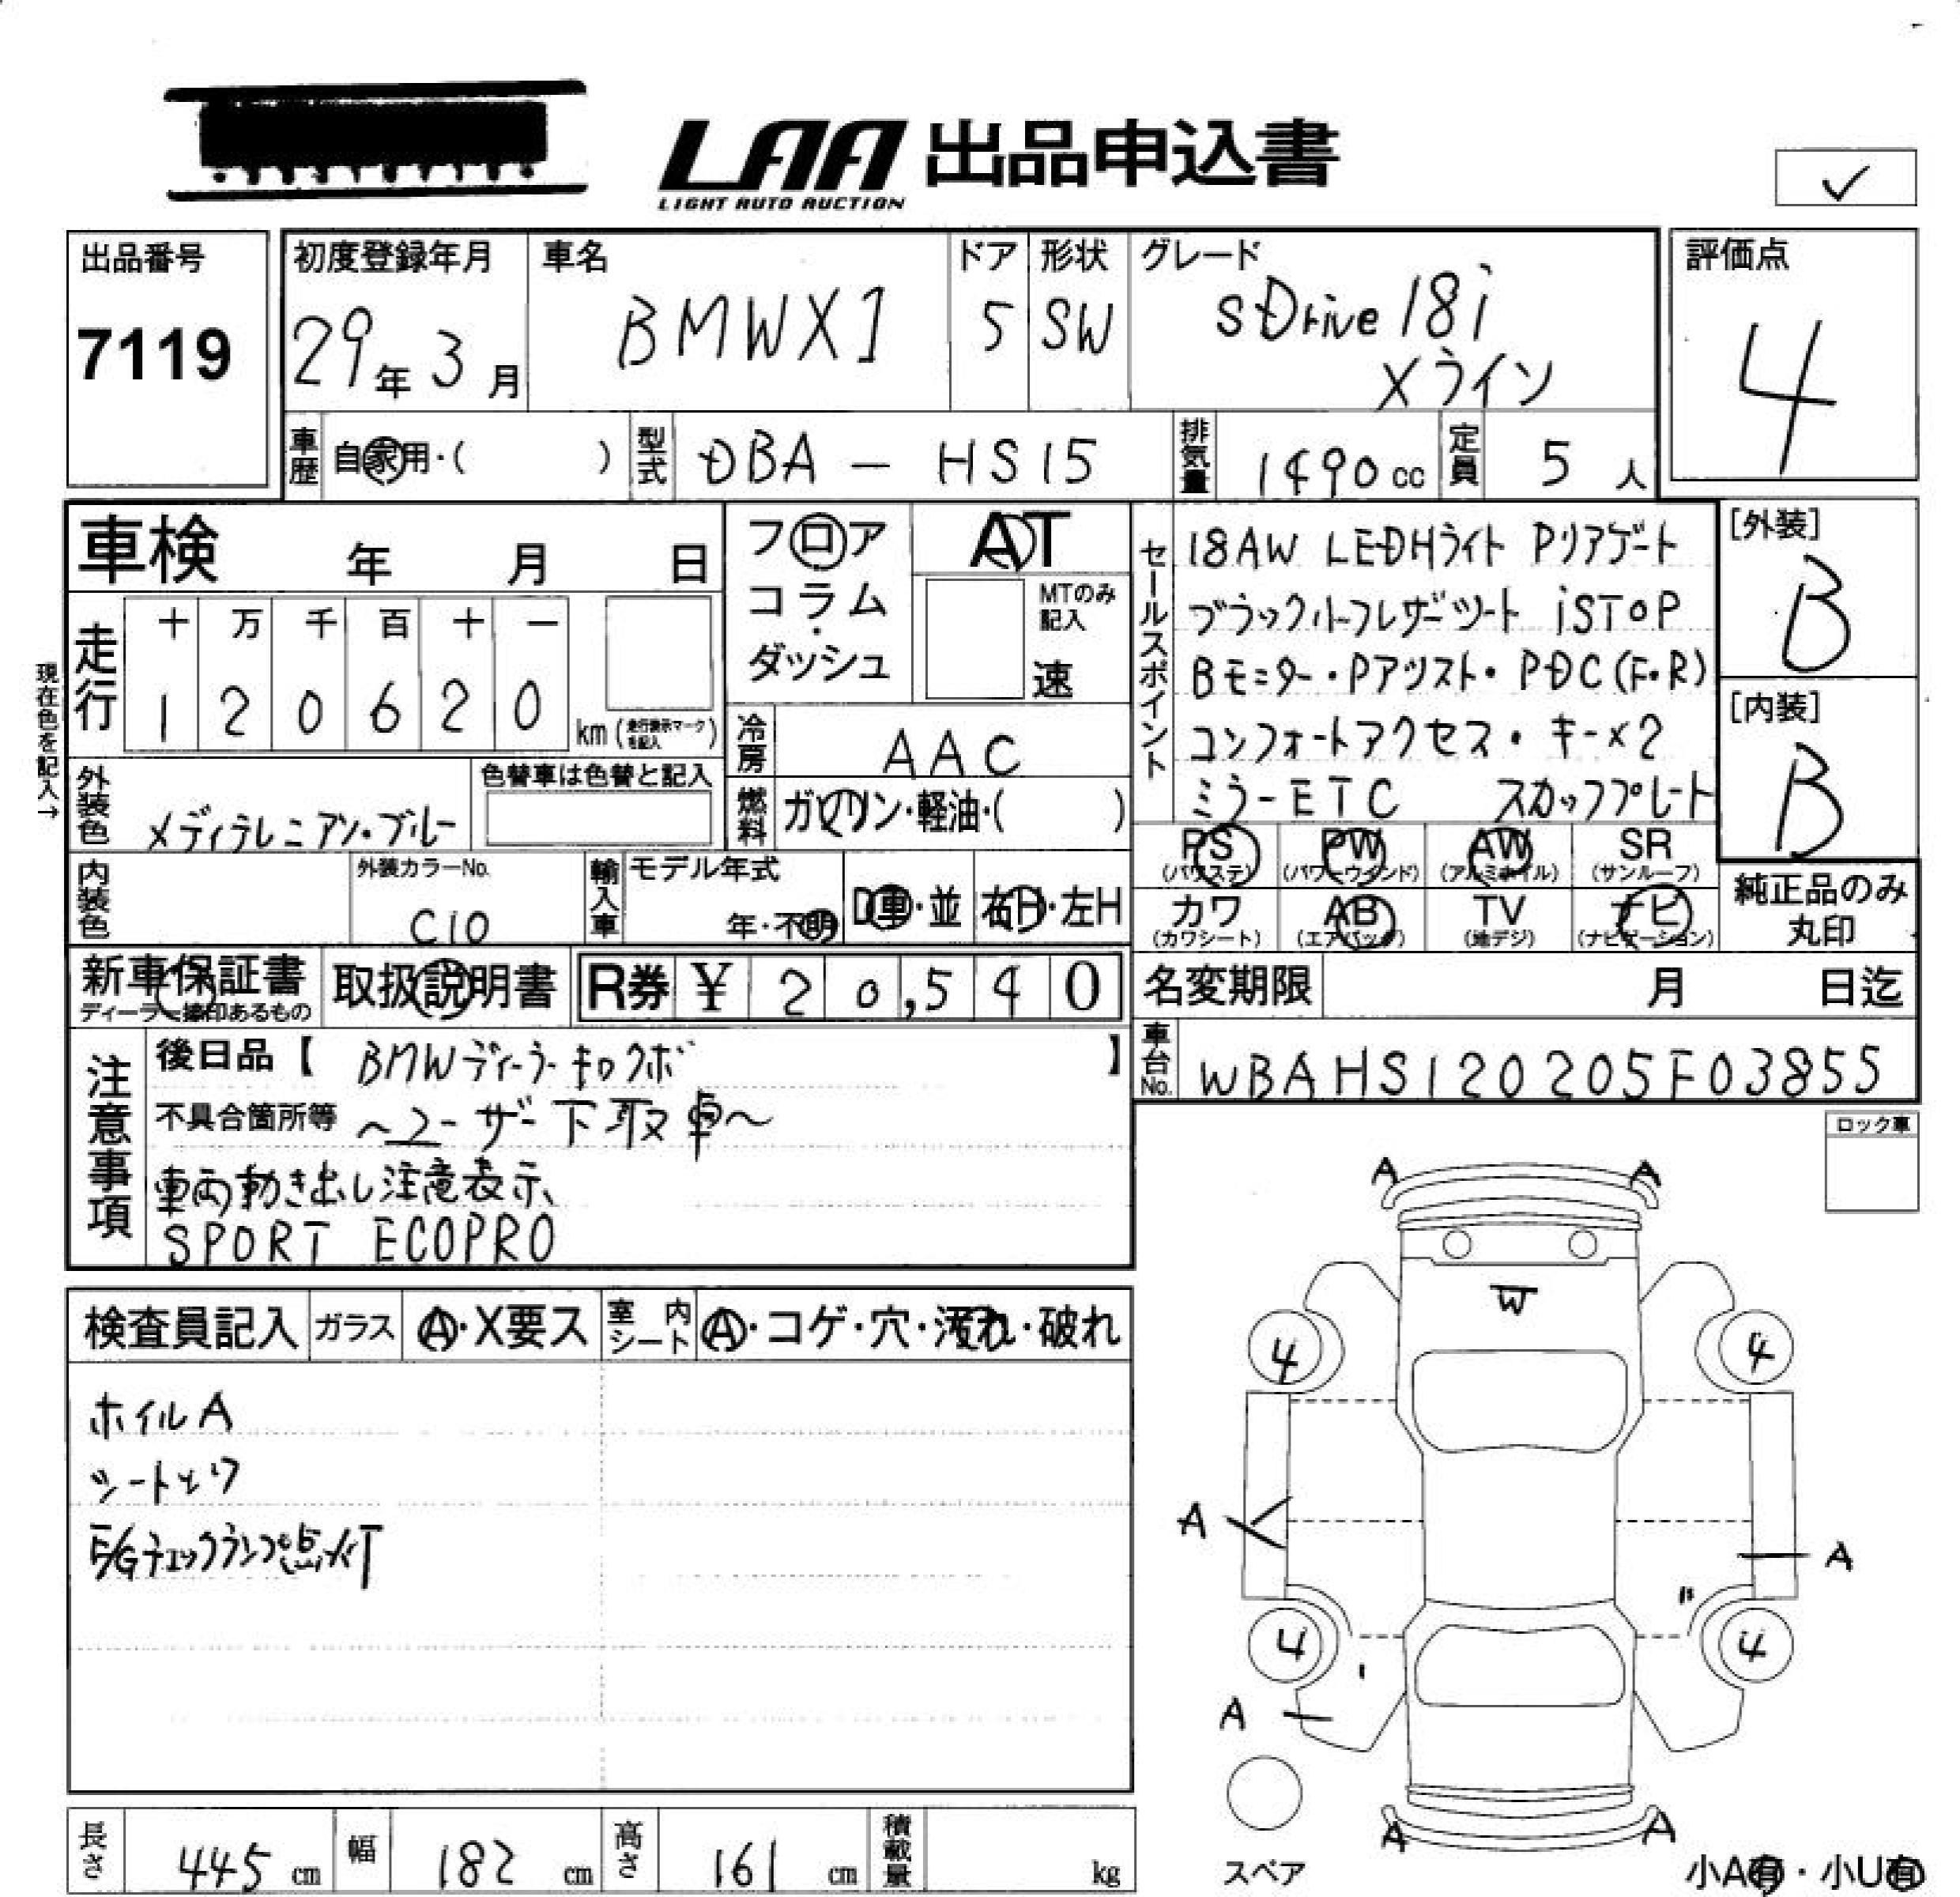 LAA 出品申込書
LIGHT AUTO AUCTION
✓
出品番号
7119
初度登録年月
29年 3月
車名
BMWX1
ドア
5
形状
SW
グレード
sDrive 18i
Xライン
評価点
4
車歴
自家用・( )
型式
DBA - HS15
排気量
1490 cc
定員
5 人
車検 年 月 日
フロア
コラム
・
ダッシュ
AT
MTのみ
記入
速
セールスポイント
18AW LEDHライト Pリアゲート
ブラックハーフレザーシート iSTOP
Bモニター・Pアシスト・PDC(F・R)
コンフォートアクセス・キー×2
ミラーETC スカッフプレート
[外装]
B
[内装]
B
現在色を記入→
走行
十 万 千 百 十 一
1 2 0 6 2 0
km(走行表示マークを記入)
冷房
AAC
外装色
メディテレニアン・ブルー
色替車は色替と記入
燃料
ガソリン・軽油・( )
PS
(パワステ)
PW
(パワーウインド)
AW
(アルミホイル)
SR
(サンルーフ)
内装色
外装カラーNo.
C10
輸入車
モデル年式
年・不明
D車・並
右H・左H
カワ
(カワシート)
AB
(エアバック)
TV
(地デジ)
ナビ
(ナビゲーション)
純正品のみ
丸印
新車保証書
ディーラー捺印あるもの
取扱説明書
R券 ¥ 20,540
名変期限 月 日迄
車台No.
WBAHS120205F03855
注意事項
後日品【 BMWディーラーキロクボ 】
不具合箇所等 ～ユーザー下取車～
車両動き出し注意表示、
SPORT ECOPRO
ロック車
検査員記入
ガラス
A・X要ス
室内
シート
A・コゲ・穴・汚れ・破れ
ホイルA
シートシワ
E/Gチェックランプ点灯
A A
W
4 4
A
A
4 4
A
A A
スペア
小A有・小U有
長さ 445 cm
幅 182 cm
高さ 161 cm
積載量 kg